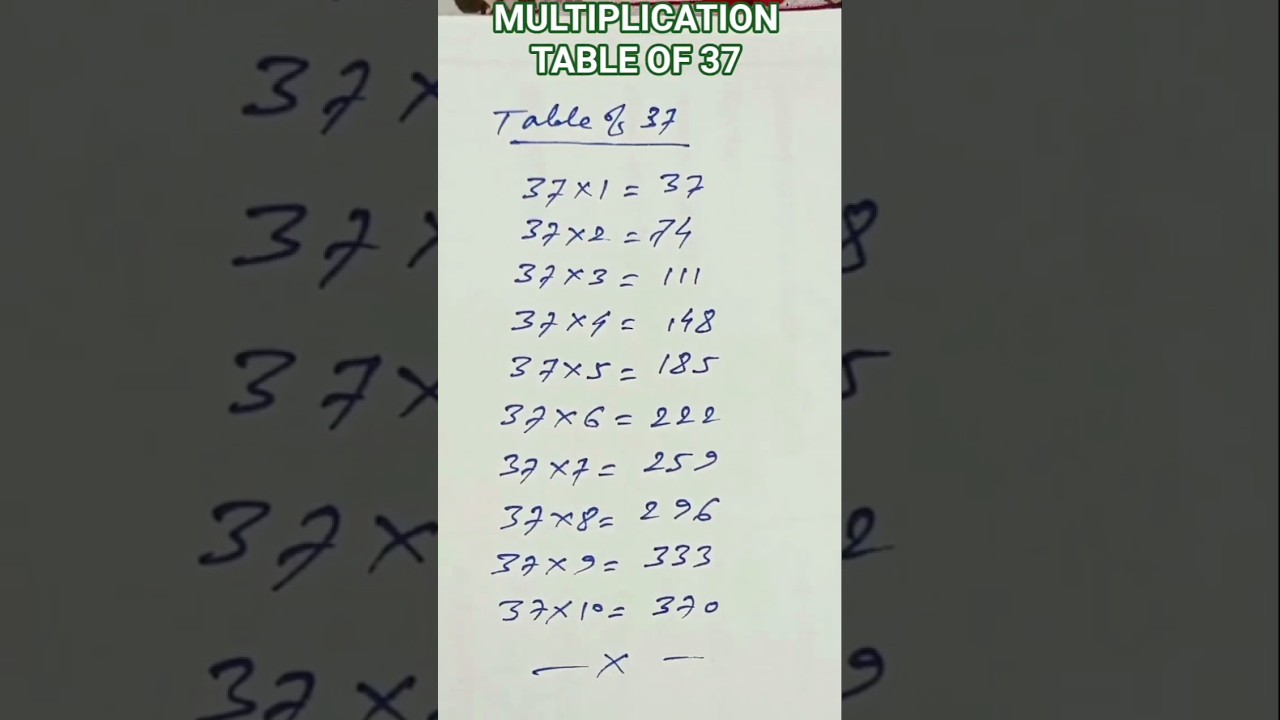 MULTIPLICATION
TABLE OF 37
Table of 37
37×1 = 37
37×2 = 74
37×3 = 111
37×4 = 148
37×5 = 185
37×6 = 222
37×7 = 259
37×8 = 296
37×9 = 333
37×10 = 370
— × —